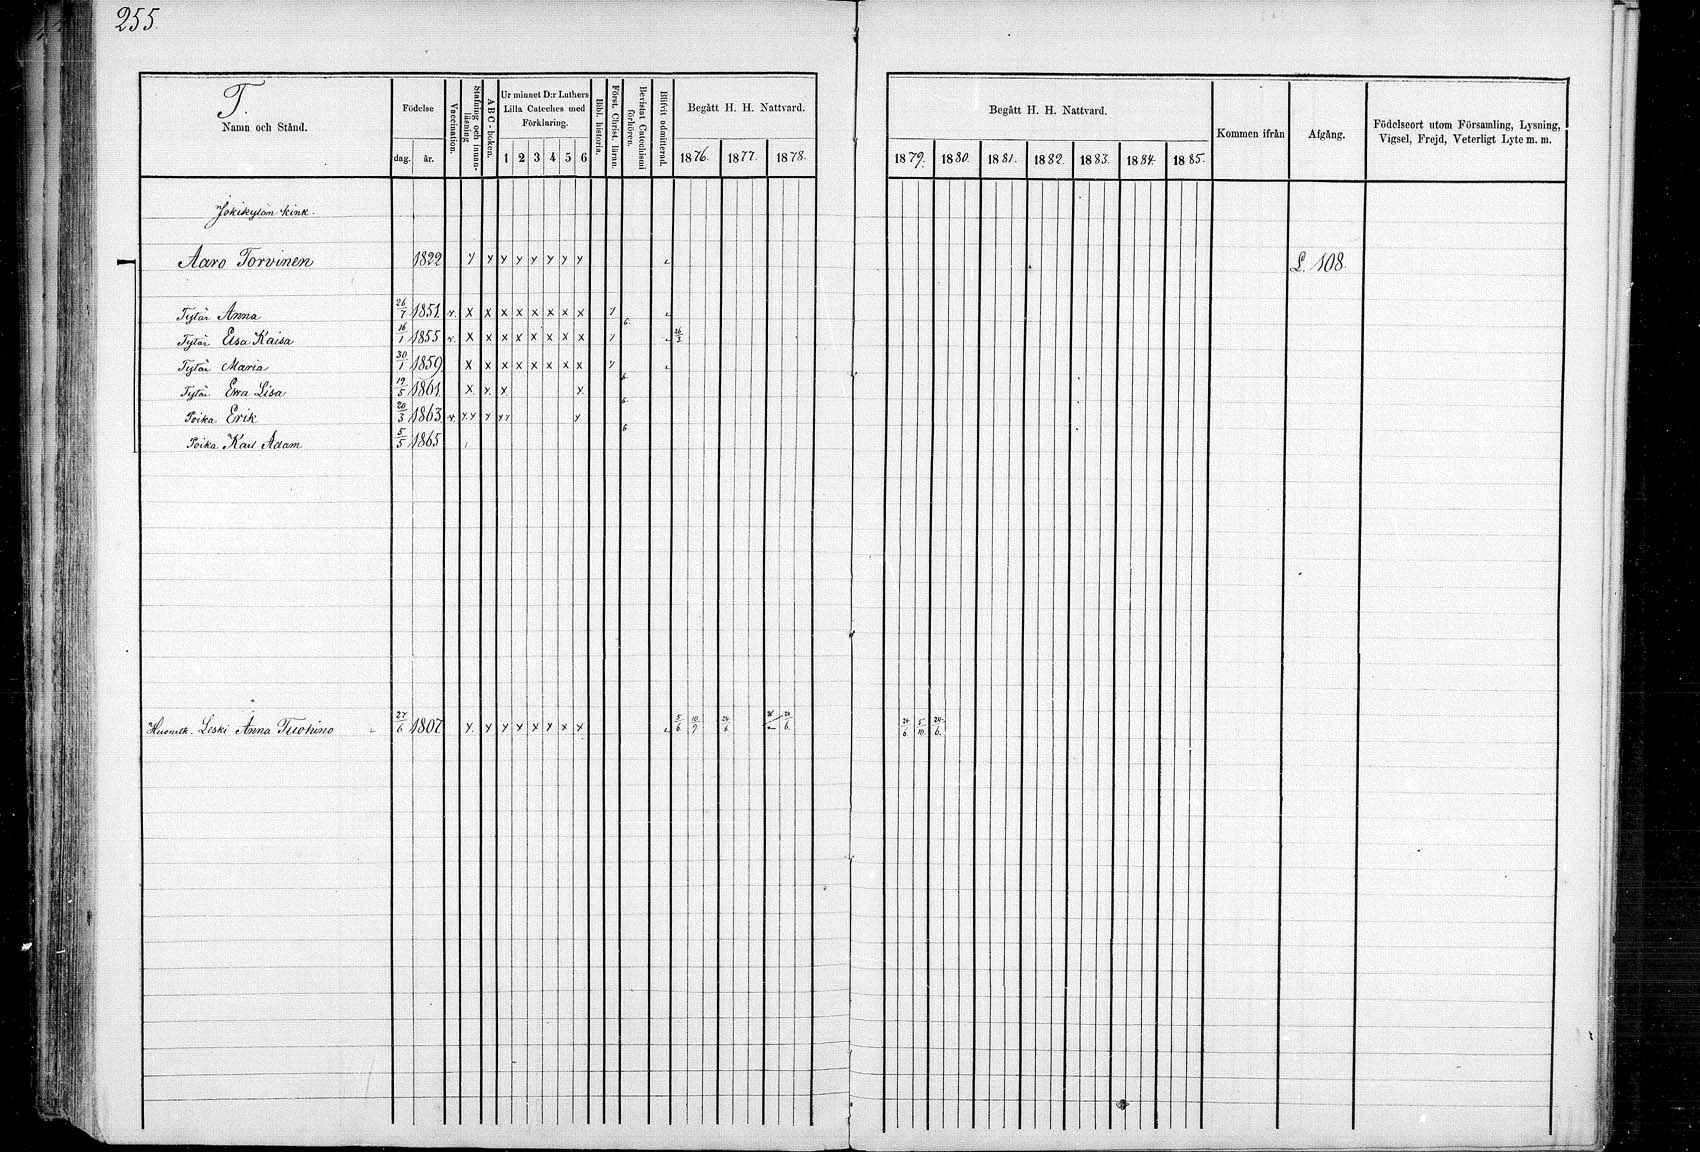 255.
T.
Namn och Stånd.
Födelse
dag. år.
Vaccination.
Stafning och innan-läsning
ABC-boken.
Ur minnet D:r Luthers
Lilla Cateches med
Förklaring.
1 2 3 4 5 6
Bibl. historia.
Först. Christ. läran.
Bevistat Catechismi förhören.
Blifvit admitterad.
Begått H. H. Nattvard.
1876. 1877. 1878.
Begått H. H. Nattvard.
1879. 1880. 1881. 1882. 1883. 1884. 1885.
Kommen ifrån
Afgång.
Födelseort utom Församling, Lysning,
Vigsel, Frejd, Veterligt Lyte m. m.
Jokikylän kink.
Aaro Torvinen 1822 L. 108.
Tytär Anna 26/7 1851. v. x x x x x x x x
Tytär Elsa Kaisa 16/1 1855 v. x x x x x x x x 26/3
Tytär Maria 30/1 1859 x x x x x x x x
Tytär Ewa Lisa 19/5 1861
Poika Erik 20/3 1863 v.
Poika Karl Adam 5/5 1865
Leski Anna Tuohino 27/6 1807 5/6 10/9 24/6 24/6 5/10 24/6.